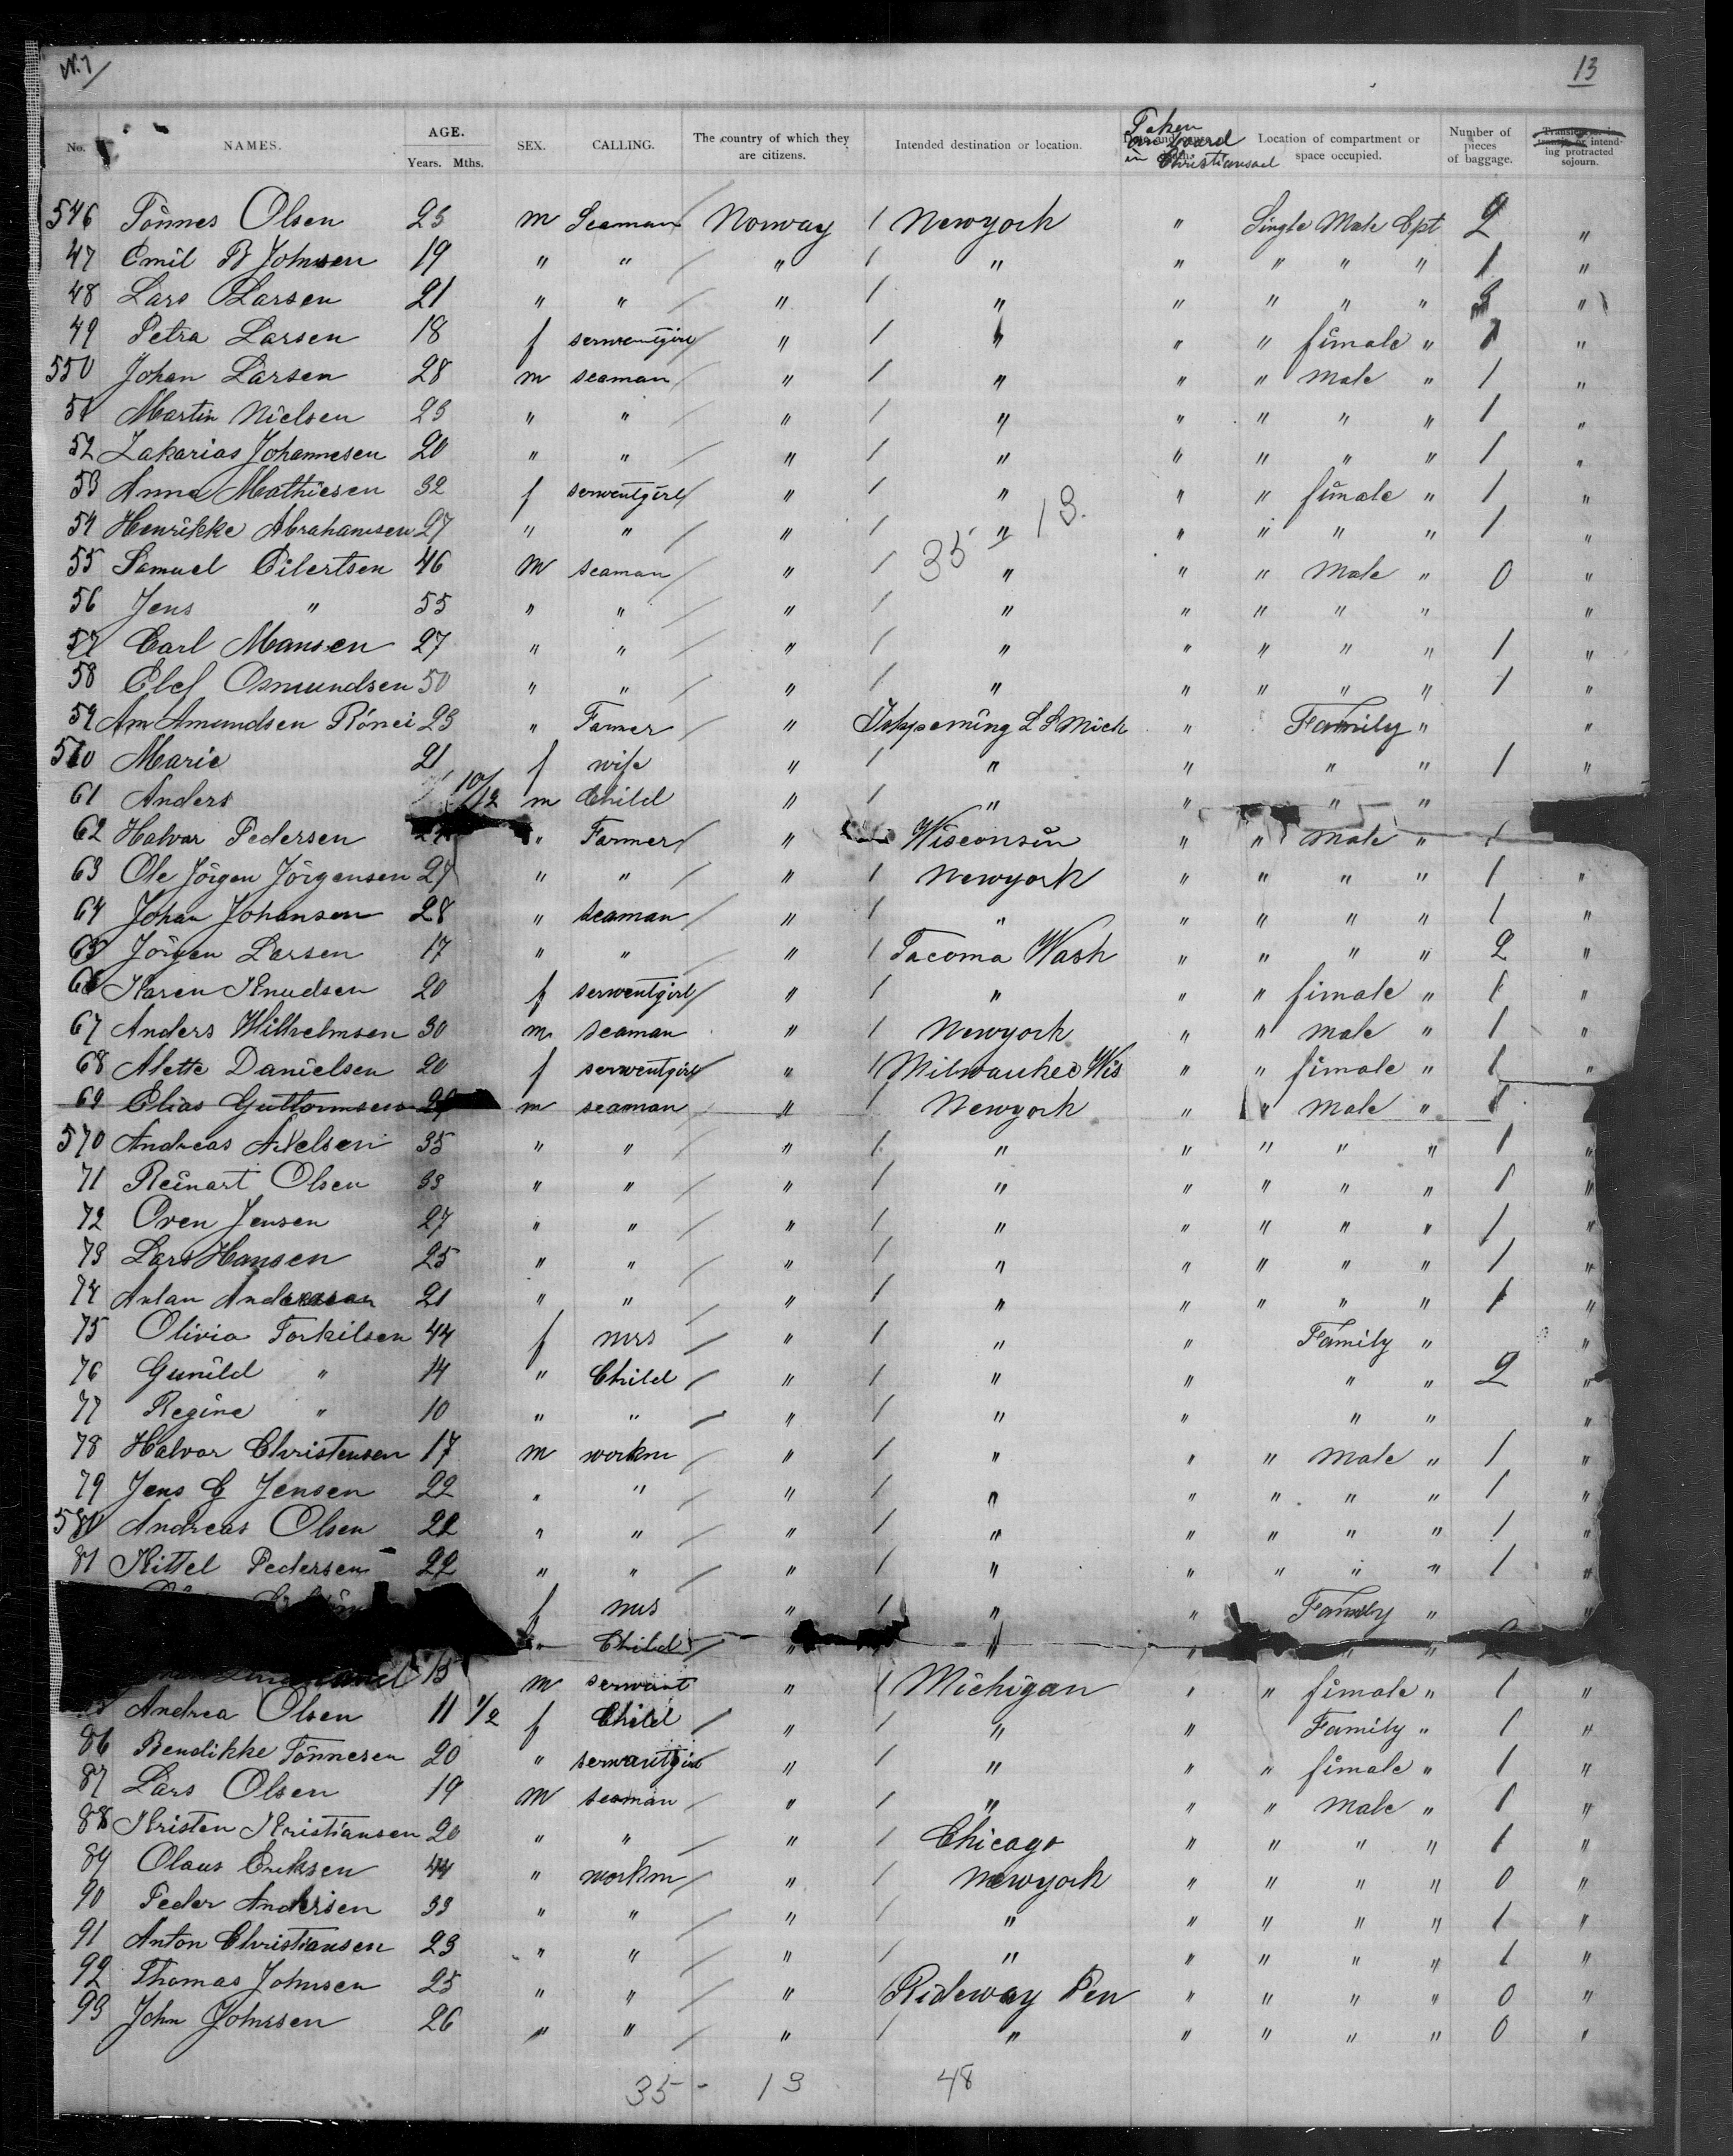 N. 7 13
No. NAMES. AGE. Years. Mths. SEX. CALLING. The country of which they are citizens. Intended destination or location. Taken on board in Christiansand Location of compartment or space occupied. Number of pieces of baggage.
546 Tönnes Olsen 23 m Seaman / Norway / Newyork " Single Male Cpt 2 "
47 Emil B Johnsen 19 " " / " / " " " " " 1 "
48 Lars Larsen 21 " " / " / " " " " " "
49 Petra Larsen 18 f serwentgirl / " / " " " fimale " 1 "
550 Johan Larsen 28 m seaman / " / " " " male " 1 "
51 Martin Nielsen 23 " " / " / " " " " " 1 "
52 Zakarias Johannesen 20 " " / " / " " " " " 1 "
53 Anna Mathiesen 32 f serwentgirl / " / " " " fimale " 1 "
54 Henrikke Abrahamsen 27 " " / " / " 13 " " " " 1 "
55 Samuel Eilertsen 46 m seaman / " / 35 " " " male " 0 "
56 Jens " 55 " " / " / " " " " " "
57 Carl Mansen 27 " " / " / " " " " " 1 "
58 Elef Osmundsen 50 " " / " / " " " " " 1 "
59 Am Amundsen Rönei 23 " Farmer / " Ishpeming L S Mich " Family " "
560 Marie 21 f wife " / " " " " 1 "
61 Anders 10/12 m Child " / " " " "
62 Halvor Pedersen " Farmer / " Wisconsin " " male " 1
63 Ole Jörgen Jörgensen 27 " " / " / Newyork " " " " 1 "
64 Johan Johansen 28 " seaman / " / " " " " " 1 "
65 Jörgen Larsen 17 " " / " / Tacoma Wash " " " " 2 "
66 Karen Knudsen 20 f serwentgirl / " / " " " fimale " 1 "
67 Anders Wilhelmsen 30 m seaman " / Newyork " " male " 1 "
68 Alette Danielsen 20 f serwentgirl / " / Milwaukee Wis " " fimale " 1 "
69 Elias Guttormsen m seaman / " / Newyork " " male " 1
570 Andreas Axelsen 35 " " / " / " " " " " 1 "
71 Reinart Olsen 33 " " / " / " " " " " 1 "
72 Oven Jensen 27 " " / " / " " " " " 1 "
73 Lars Hansen 25 " " / " / " " " " " 1 "
74 21 " " / " / " " " " " 1 "
75 Olivia Torkilsen 44 f mrs / " / " " Family " "
76 Gunild " 14 " Child / " / " " " " 2 "
77 Regine " 10 " " / " / " " " " "
78 Halvor Christensen 17 m workm / " / " " " male " 1 "
79 Jens G Jensen 22 " " / " / " " " " " 1 "
580 Andreas Olsen 22 " " / " / " " " " " 1 "
81 Kittel Pedersen 22 " " / " / " " " " " 1 "
f mrs " / " " Family " "
Child / " " " "
15 m serwant " / Michigan " " fimale " 1 "
Andrea Olsen 11 1/2 f Child / " / " " Family " 1 "
86 Bendikke Tönnesen 20 " serwantgirl " / " " " fimale " 1 "
87 Lars Olsen 19 m seaman / " / " " " male " 1 "
88 Kristen Kristiansen 20 " " / " / Chicago " " " " 1 "
89 Olaus Eriksen 44 " workm / " / Newyork " " " " 0 "
90 Peder Andersen 33 " " / " / " " " " " 1 "
91 Anton Christiansen 23 " " / " / " " " " " 1 "
92 Thomas Johnsen 25 " " / " / Rideway Pen " " " " 0 "
93 John Johnsen 26 " " / " / " " " " " 0 "
35 - 13 48